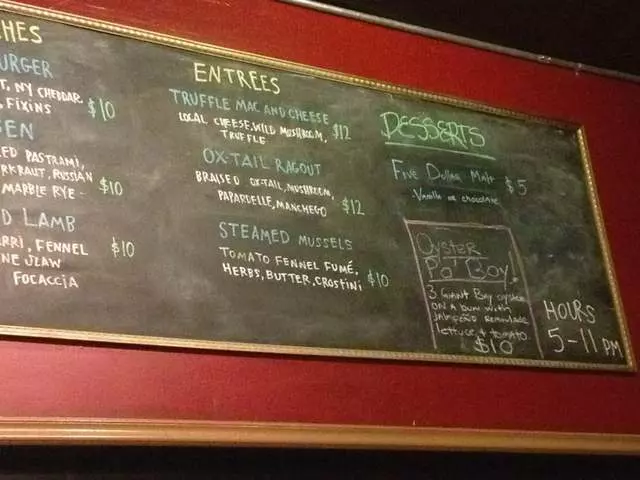 HES
URGER
T, NY CHEDDAR,
, FIXINS $10
EN
ED PASTRAMI,
RKRAUT, RUSSIAN
MARBLE RYE - $10
D LAMB
RRI, FENNEL $10
NE SLAW
FOCACCIA
ENTREES
TRUFFLE MAC AND CHEESE
LOCAL CHEESE, WILD MUSHROOM, $12
TRUFFLE
OX-TAIL RAGOUT
BRAISED OX-TAIL, MUSHROOM,
PAPARDELLE, MANCHEGO $12
STEAMED MUSSELS
TOMATO FENNEL FUMÉ,
HERBS, BUTTER, CROSTINI $10
DESSERTS
Five Dollar Malt $5
Vanilla or chocolate
Oyster
Po' Boy!
3 Giant Bay oysters
on a bun with
jalapeño remoulade
lettuce + tomato
$10
HOURS
5-11 PM